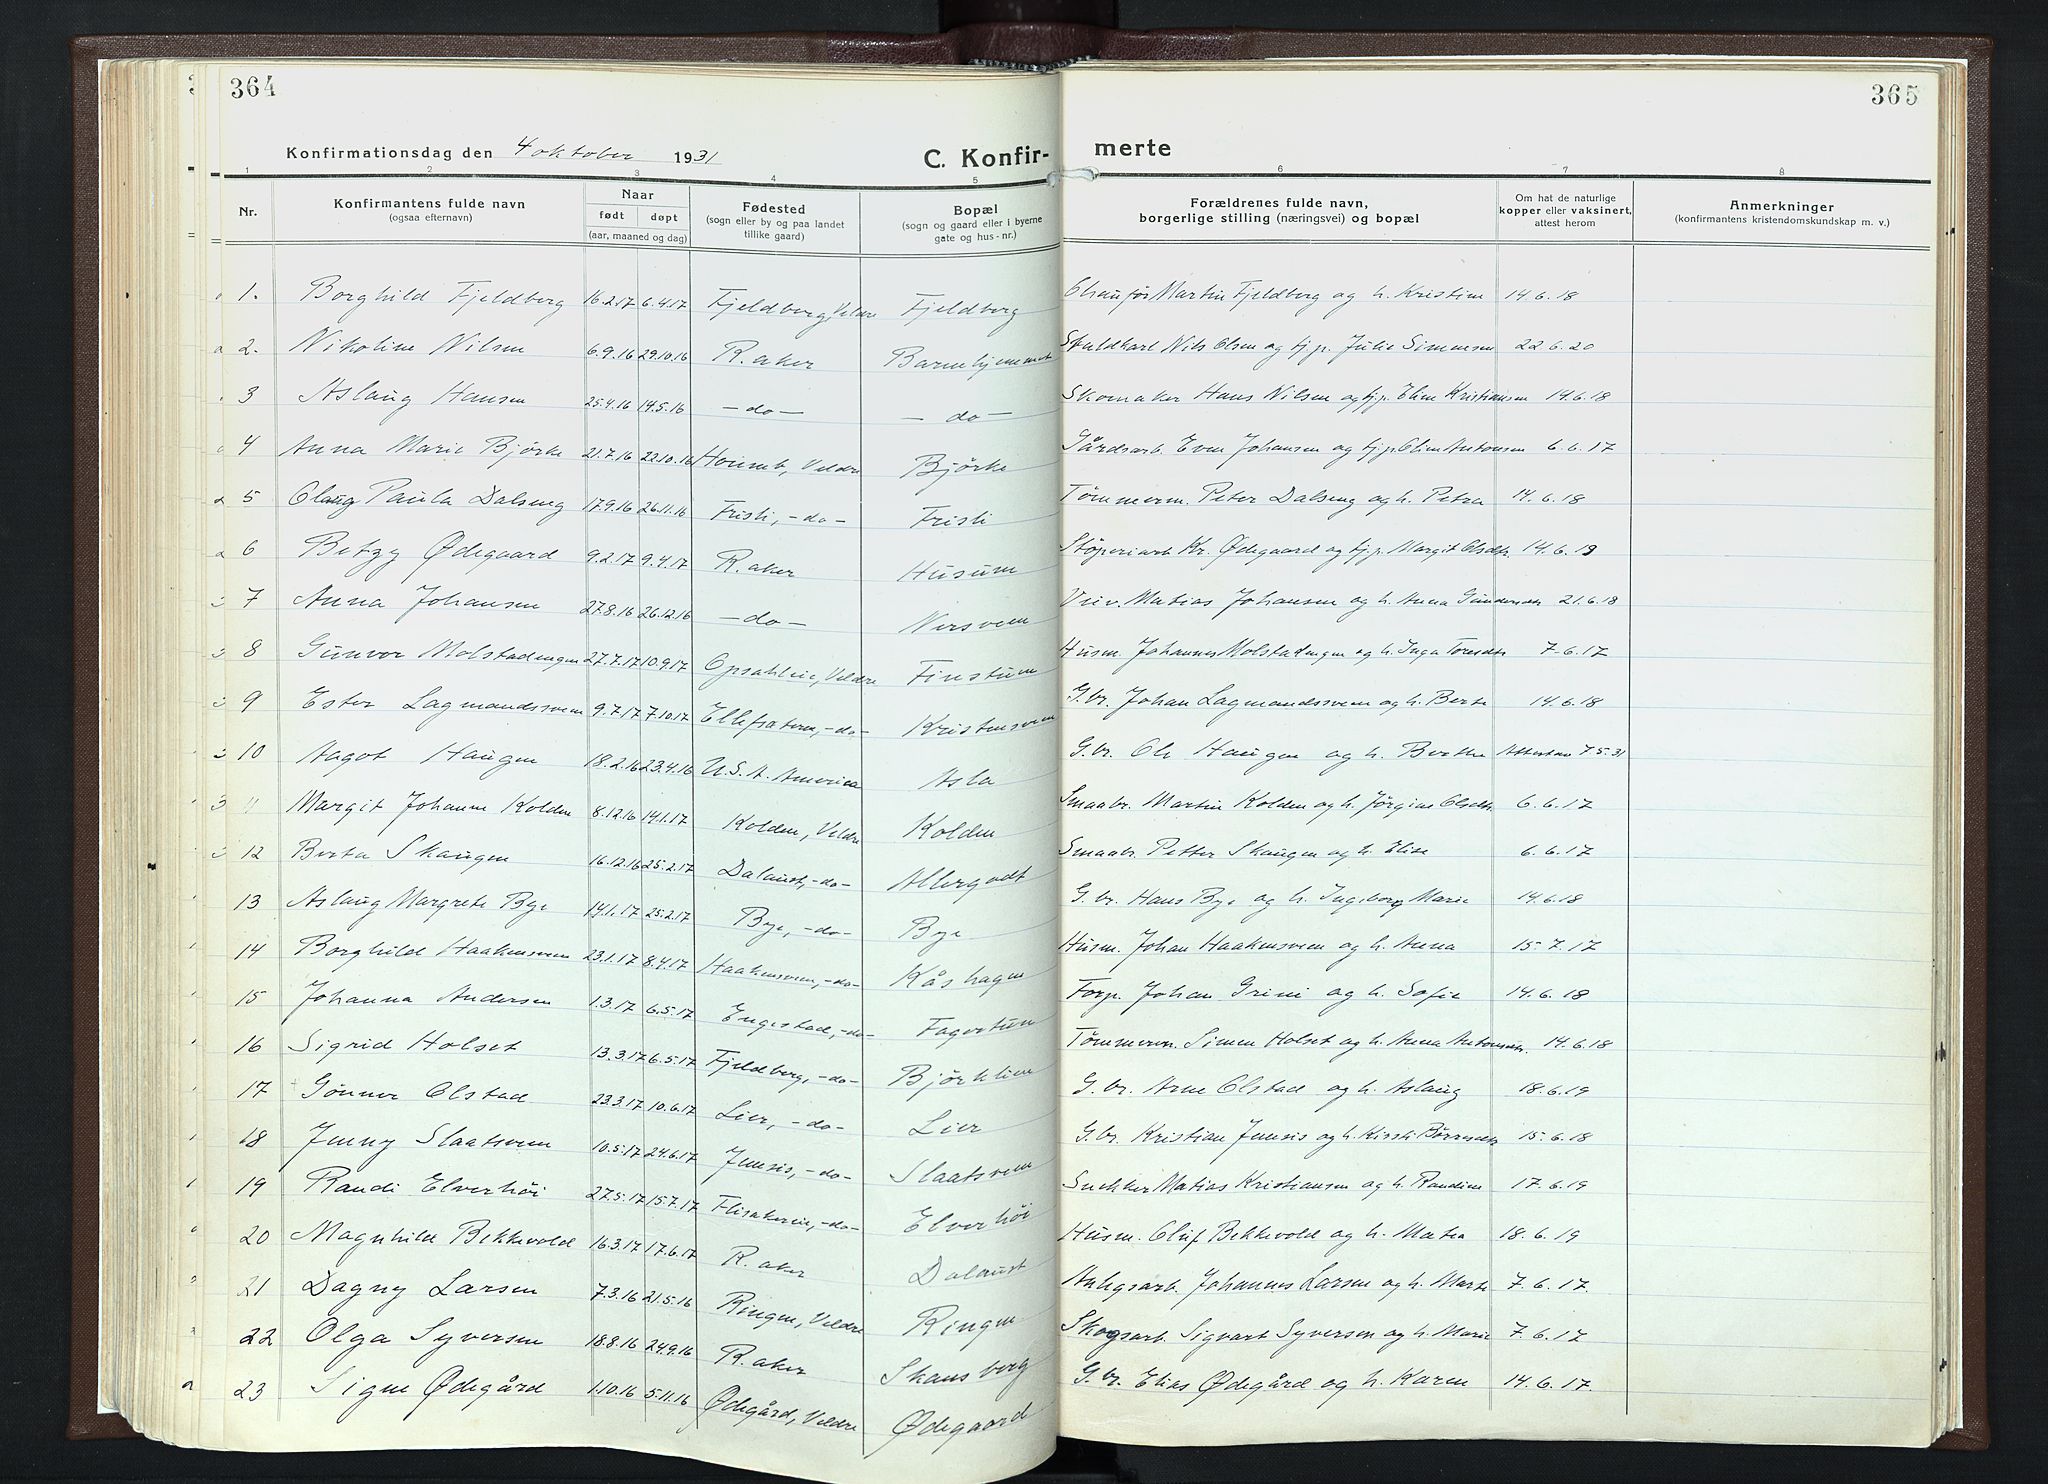 364
365
Konfirmationsdag den 4 oktober 1931
C. Konfir-
merte
1 2 3 4 5 6 7 8
Nr.
Konfirmantens fulde navn
(ogsaa efternavn)
Naar
født døpt
(aar, maaned og dag)
Fødested
(sogn eller by og paa landet
tillike gaard)
Bopæl
(sogn og gaard eller i byerne
gate og hus-nr.)
Forældrenes fulde navn,
borgerlige stilling (næringsvei) og bopæl
Om hat de naturlige
kopper eller vaksinert,
attest herom
Anmerkninger
(konfirmantens kristendomskundskap m. v.)
1. Borghild Fjeldberg 16.2.17 6.4.17 Fjeldberg, Veldre Fjeldberg Chauffør Martin Fjeldberg og h. Kristine 14.6.18
2. Nikoline Nilsen 6.9.16 29.10.16 R.aker Barnehjemmet Nils Olsen og tj.p. Julie Simensen 22.6.20
3 Aslaug Hansen 25.4.16 14.5.16 -do- -do- Skomaker Hans Nilsen og tj.p. Eline Kristiansen 14.6.18
4 Anna Marie Bjørke 21.7.16 22.10.16 Veldre Bjørke Gårdsarb. Even Johansen og tj.p. Oline Antonsen 6.6.17
5 Olaug Paula Dalseng 17.9.16 26.11.16 Fristi, -do- Fristi Tømmerm. Peter Dalseng og h. Petra 14.6.18
6 Betzy Ødegaard 9.2.17 9.4.17 R.aker Husum Støperiarb. Kr. Ødegaard og tj.p. Margit Olsdtr. 14.6.18
7 Anna Johansen 27.8.16 26.12.16 -do- Nersveen Matias Johansen og h. Anna Gundersdtr. 21.6.18
8 Gunvor Molstadengen 27.7.17 10.9.17 Opsahleie, Veldre Finstuen Husm. Johannes Molstadengen og h. Inga Toresdtr. 7.6.17
9 Ester Lagmandssveen 9.7.17 7.10.17 -do- Kristensveen G.br. Johan Lagmandssveen og h. Berte 14.6.18
10 Aagot Haugen 18.2.16 23.4.16 U.S.A. America Asla G.br. Ole Haugen og h. Berthe Attest av 7.5.31
11 Margit Johanne Kolden 8.12.16 14.1.17 Kolden, Veldre Kolden Smaabr. Martin Kolden og h. Jørgine Olsdtr. 6.6.17
12 Berta Skaugen 16.12.16 25.2.17 Dalaust, -do- Allergodt Smaabr. Petter Skaugen og h. Elise 6.6.17
13 Aslaug Margrete Bye 14.1.17 25.2.17 Bye, -do- Bye G.br. Hans Bye og h. Ingeborg Marie 14.6.18
14 Borghild Haakensveen 23.1.17 8.4.17 Haakensveen, -do- Kåshagen Husm. Johan Haakensveen og h. Anna 15.7.17
15 Johanna Andersen 1.3.17 6.5.17 Engestad, -do- Fagertun Forp. Johan Grini og h. Sofie 14.6.18
16 Sigrid Holset 13.3.17 6.5.17 Fjeldberg, -do- Bjørklien Tømmerm. Simen Holset og h. Anna Antonsdtr. 14.6.18
17 Gønner Olstad 23.3.17 10.6.17 Lier, -do- Lier G.br. Arne Olstad og h. Aslaug 18.6.19
18 Jenny Slaatsveen 10.5.17 24.6.17 Jensis, -do- Slaatsveen G.br. Kristian Jensis og h. Kirsti Børresdtr. 15.6.18
19 Randi Elverhöi 27.5.17 15.7.17 Flisakereie, -do- Elverhöi Snekker Matias Kristiansen og h. Randine 17.6.19
20 Magnhild Bekkevold 16.3.17 17.6.17 R.aker Dalaust Husm. Oluf Bekkevold og h. Matea 18.6.19
21 Dagny Larsen 7.3.16 21.5.16 Ringen, Veldre Ringen Anlegsarb. Johannes Larsen og h. Marte 7.6.17.
22 Olga Syversen 18.8.16 24.9.16 R.aker Skansberg Skogsarb. Sigvart Syversen og h. Marie 7.6.17
23 Signe Ødegård 1.10.16 5.11.16 Ødegård, Veldre Ødegaard G.br. Elias Ødegård og h. Karen 14.6.17.